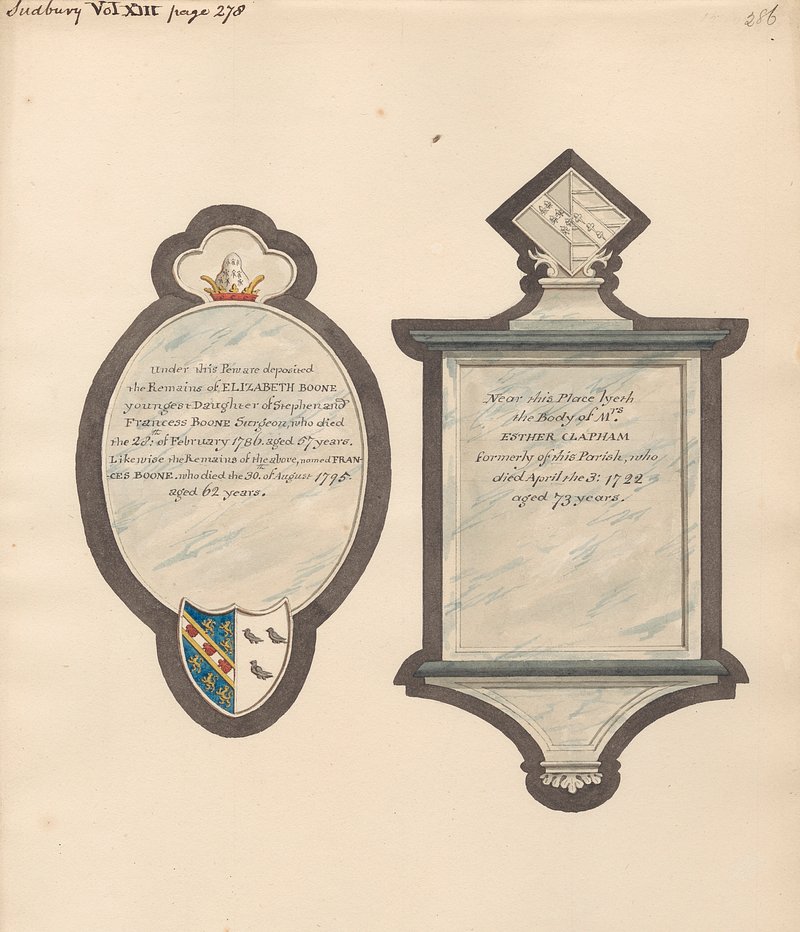 Sudbury Vol XIII page 278
286
Under this Pew are deposited
the Remains of ELIZABETH BOONE
youngest Daughter of Stephen and
Francess BOONE Surgeon, who died
the 28:th of February 1786. aged 57 years.
Likewise the Remains of the above, named FRAN-
-CES BOONE. who died the 30.th of August 1795.
aged 62 years.
Near this Place lyeth
the Body of Mrs.
ESTHER CLAPHAM
formerly of this Parish, who
died April the 3: 1722
aged 73 years.